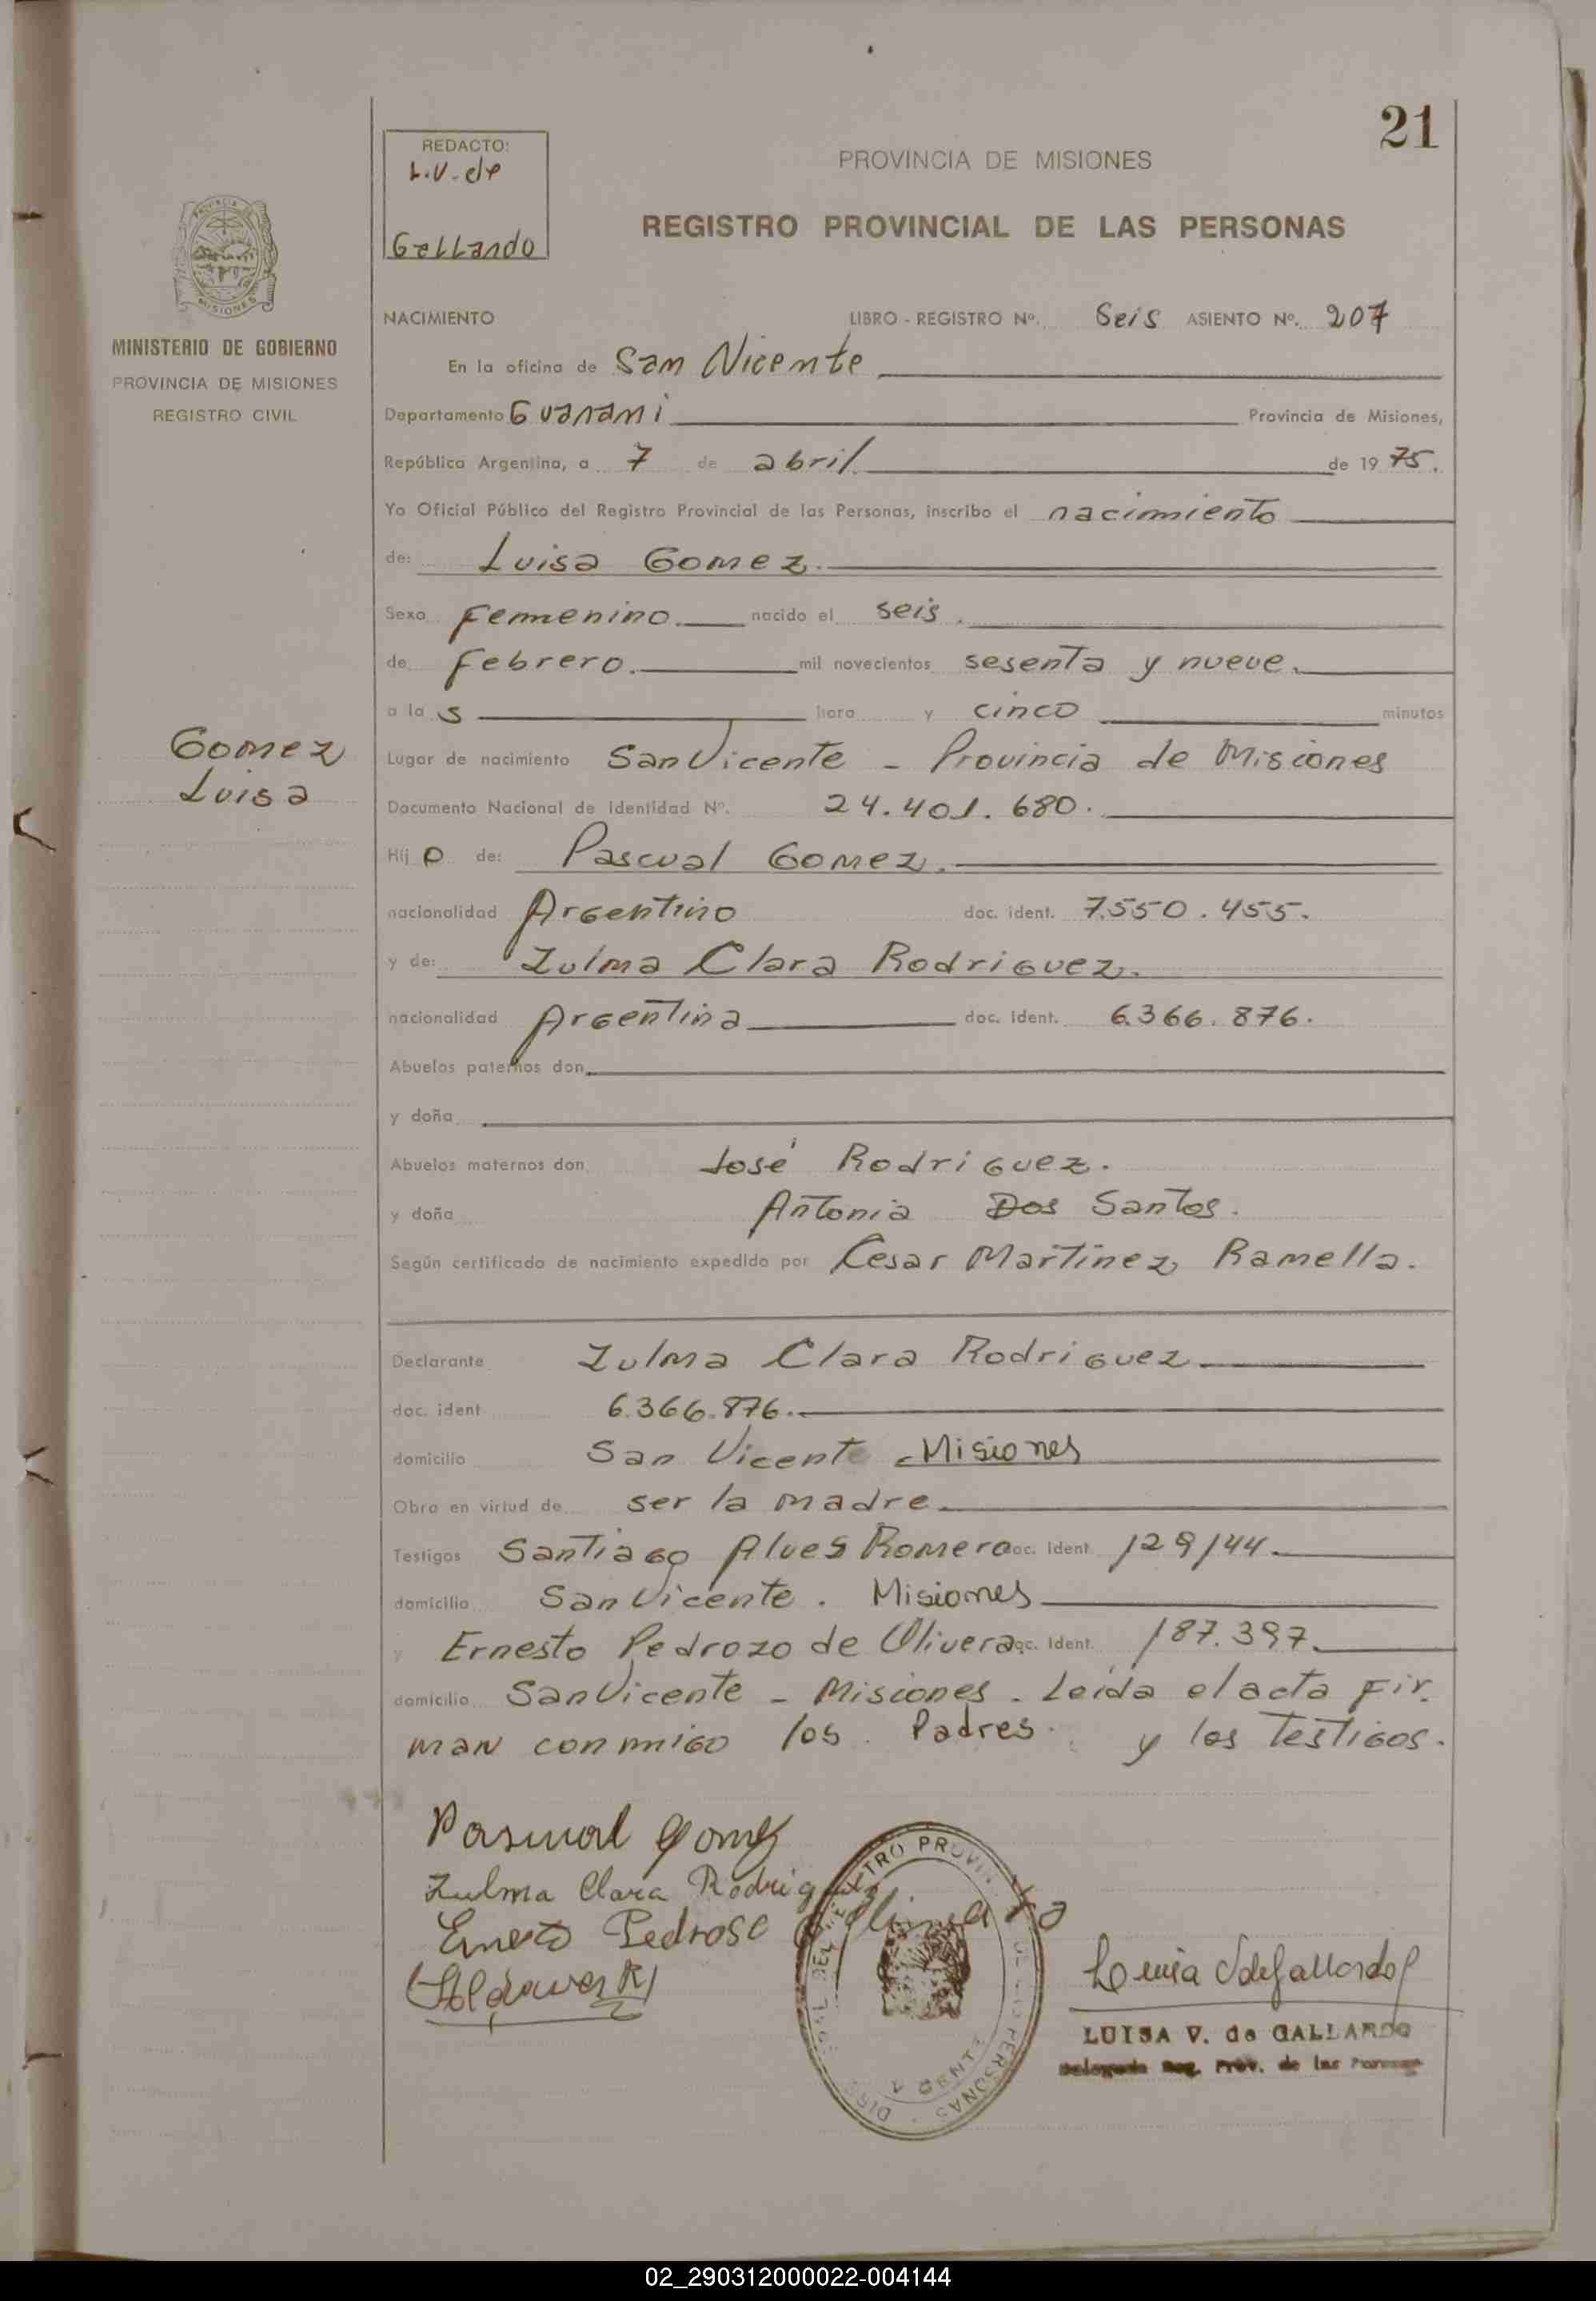 21
REDACTO:
L.V. de
Gallardo
PROVINCIA DE MISIONES
REGISTRO PROVINCIAL DE LAS PERSONAS
MINISTERIO DE GOBIERNO
PROVINCIA DE MISIONES
REGISTRO CIVIL
NACIMIENTO LIBRO - REGISTRO Nº. Seis ASIENTO Nº. 207
En la oficina de San Vicente
Departamento Guarani Provincia de Misiones,
República Argentina, a 7 de abril de 1975.
Yo Oficial Público del Registro Provincial de las Personas, inscribo el nacimiento
de: Luisa Gomez.
Sexo Femenino. nacido el seis.
de Febrero. mil novecientos sesenta y nueve.
a las hora y cinco minutos
Gomez
Luisa
Lugar de nacimiento San Vicente - Provincia de Misiones
Documento Nacional de Identidad Nº. 24.401.680.
Hijo de: Pascual Gomez.
nacionalidad Argentino doc. ident. 7.550.455.
y de: Zulma Clara Rodriguez.
nacionalidad Argentina doc. ident. 6.366.876.
Abuelos paternos don
y doña
Abuelos maternos don José Rodriguez.
y doña Antonia Dos Santos.
Según certificado de nacimiento expedido por Cesar Martinez Ramella.
Declarante Zulma Clara Rodriguez
doc. ident 6.366.876.
domicilio San Vicente - Misiones
Obra en virtud de ser la madre.
Testigos Santiago Alves Romero doc. Ident. 129144.
domicilio San Vicente. Misiones
y Ernesto Pedrozo de Olivera doc. Ident. 187.397.
domicilio San Vicente - Misiones. Leida el acta fir.
man conmigo los Padres. y los Testigos.
Pascual Gomez
Zulma Clara Rodriguez
Ernesto Pedroso
Luisa V de Gallardo
LUISA V. de GALLARDO
Delegada Reg. Prov. de las Personas
02_290312000022-004144